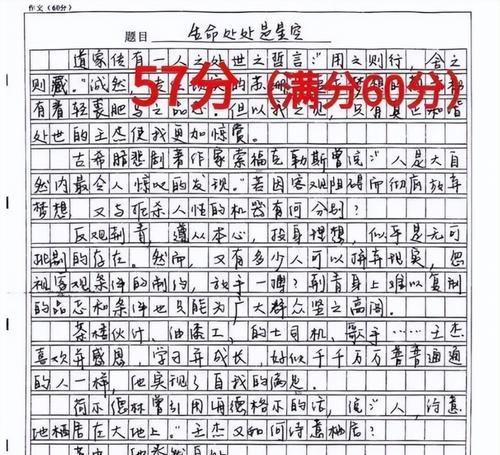 作文(60分)
题目 生命处处是星空
道家传有一人之处世之哲言:“用之则行,舍之
则藏。”诚然
57分(满分60分)
有着轻裘肥马之品
处世的王杰使我更加惊赏。
古希腊悲剧著作家索福克勒斯曾说:“人是大自
然内最令人惊叹的发现。”若因客观阻碍而彻底放弃
梦想,又与扼杀人性的机器有何分别?
反观荆青,遵从本心,投身理想,似乎是无可
挑剔的存在。然而,又有多少人可以摒弃现实,忽
视客观条件的制约,放手一搏?荆青身上难以复制
的品志和条件也只能为广大群众竖之高阁。
茶楼伙计、油漆工、的士司机、歌手……王杰
喜欢并感恩,学习并成长,好似千千万万普普通通
的人一样,他实现了自我的满足。
荷尔德林曾引用海德格尔的话,说:“人,诗意
地栖居在大地上。”王杰又如何诗意栖居?